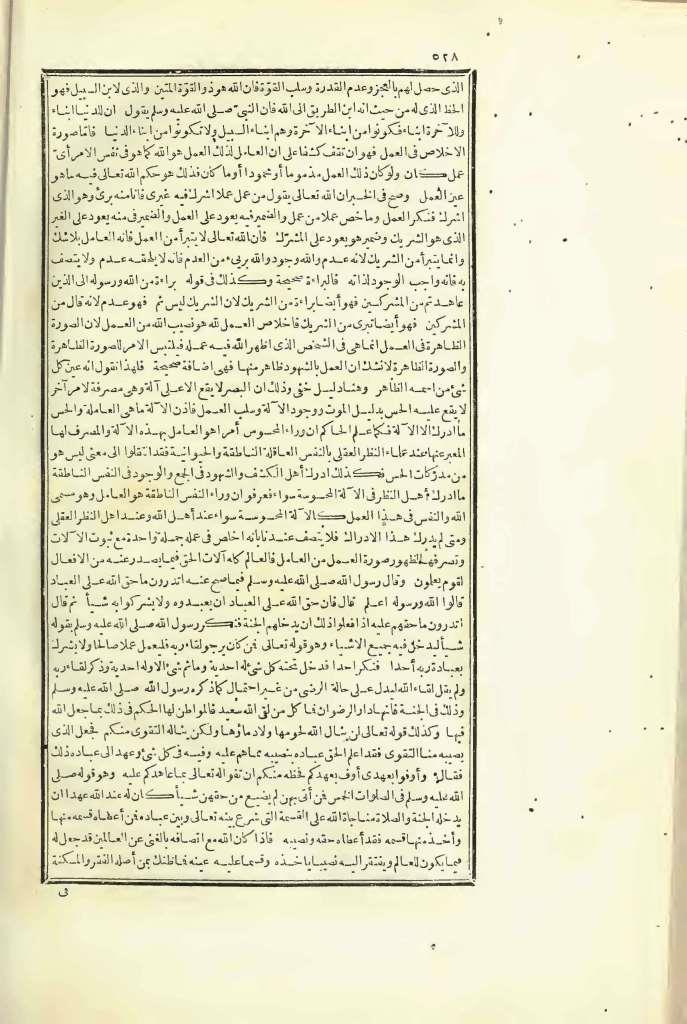 ٥٢٨
الذى حصل لهم بالعجز وعدم القدرة وسلب القوّة فان الله هو ذو القوّة المتين والذى لابن السبيل فهو
الحظ الذى له من حيث انه ابن الطريق الى الله فان النبىّ صلى الله عليه وسلم يقول ان للدنيا ابناء
وللآخرة ابناء فكونوا من ابناء الآخرة وهم ابناء السبيل ولا تكونوا من ابناء الدنيا فامّا صورة
الاخلاص فى العمل فهو ان تقف كشفا على ان العامل لذلك العمل هو الله كما هو فى نفس الامر أىّ
عمل كان ولو كان ذلك العمل مذموما أو محمودا أو ما كان فذلك هو حكم الله تعالى فيه ما هو
عين العمل وصح فى الخبر ان الله تعالى يقول من عمل عملا اشرك فيه غيرى فانا منه برئ وهو الذى
اشرك فنكر العمل وما خص عملا من عمل والضمير فيه يعود على العمل والضمير فى منه يعود على الغير
الذى هو الشريك وضمير هو يعود على المشرك فان الله تعالى لا يتبرأ من العمل فانه العامل بلا شك
وانما يتبرأ من الشريك لانه عدم والله وجود والله برىء من العدم فانه لا يلحقه عدم ولا يتصف
به فانه واجب الوجود لذاته فالبراءة صحيحة وكذلك فى قوله براءة من الله ورسوله الى الذين
عاهدتم من المشركين فهو أيضا براءة من الشريك لان الشريك ليس ثم فهو عدم لانه قال من
المشركين فهو أيضا تبرى من الشريك فاخلاص العمل لله هو نصيب الله من العمل لان الصورة
الظاهرة فى العمل انما هى فى الشخص الذى اظهر الله فيه عمله فيلتبس الامر للصورة الظاهرة
والصورة الظاهرة لا نشك ان العمل بالشهود ظاهر منها فهى اضافة صحيحة فلهذا نقول انه عين كل
شئ من اسمه الظاهر وهنا دليل خفى وذلك ان البصر لا يقع الا على آلة وهى مصرفة لامر آخر
لا يقع عليه الحس بدليل الموت ووجود الآلة وسلب العمل فاذن الآلة ما هى العاملة والحس
ما ادرك الا الآلة فكما علم الحاكم ان وراء المحسوس أمرا هو العامل بهذه الآلة والمصرف لها
المعبر عنها عند علماء النظر العقلى بالنفس العاقلة الناطقة والحيوانية فقد انتقلوا الى معنى ليس هو
من مدركات الحس فكذلك ادراك أهل الكشف والشهود فى الجمع والوجود فى النفس الناطقة
ما ادرك أهل النظر فى الآلة المحسوسة سواء فعرفوا ان وراء النفس الناطقة هو العامل وهو مسمى
الله والنفس فى هذا العمل كالآلة المحسوسة سواء عند أهل الله وعند اهل النظر العقلى
ومتى لم يدرك هذا الادراك فلا يتصف عندنا بانه اخلص فى عمله جملة واحدة مع ثبوت الآلات
وتصرفها لظهور صورة العمل من العامل فالعالم كله آلات الحق فيما يصدر عنه من الافعال
لقوم يعلون وقال رسول الله صلى الله عليه وسلم فيما صح عنه اتدرون ما حق الله على العباد
قالوا الله ورسوله اعلم قال فان حق الله على العباد ان يعبدوه ولا يشركوا به شيأ ثم قال
اتدرون ما حقهم عليه اذا فعلوا ذلك ان يدخلهم الجنة فنكر رسول الله صلى الله عليه وسلم بقوله
شيأ ليدخل فيه جميع الاشياء وهو قوله تعالى فمن كان يرجو لقاء ربه فليعمل عملا صالحا ولا يشرك
بعبادة ربه أحدا فنكر احدا فدخل تحته كل شئ له احدية وما ثم شئ الا وله احدية وذكر لقاء ربه
ولم يقل لقاء الله ليدل على حالة الرضى من غير احتمال كما ذكره رسول الله صلى الله عليه وسلم
وذلك فى الجنة فانها دار الرضوان فما كل من لقى الله سعيد فالمواطن لها الحكم فى ذلك بما جعل الله
فيها وكذلك قوله تعالى لن ينال الله لحومها ولا دماؤها ولكن يناله التقوى منكم فجعل الذى
يصيبه منا التقوى فقد اعلم الحق عباده بنصيبه مما هم عليه وفيه فى كل شئ وعهد الى عباده ذلك
فقال وأوفوا بعهدى أوف بعهدكم فحظه منكم ان تفواله تعالى بما عاهدكم عليه وهو قوله صلى
الله عليه وسلم فى الصلوات الخمس فمن أتى بهن لم يضيع من حقهن شيأ كان له عند الله عهدا ان
يدخله الجنة والصلاة مناجاة الله على القسمة التى شرع بينه تعالى وبين عباده فمن أعطاه قسمه منها
وأخذ منها قسمه فقد أعطاه حقه ونصيبه فاذا كان الله مع اتصافه بالغنى عن العالمين قد جعل له
فيما يكون للعالم ويفتقر اليه نصيبا ياخذه وقسما عليه عينه فما ظنك بمن أصله الفقر والمسكنة
فى